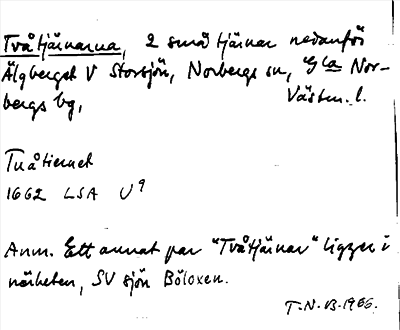 Tvåtjärnarna, 2 små tjärnar nedanför
Älgberget V Storsjön, Norbergs sn, Gla Nor-
bergs bg, Västm. l.
Tuåtiernet
1662 LSA U⁹
Anm. Ett annat par "Tvåtjärnar" ligger i
närheten, SV sjön Böloxen.
T.N. 1966.